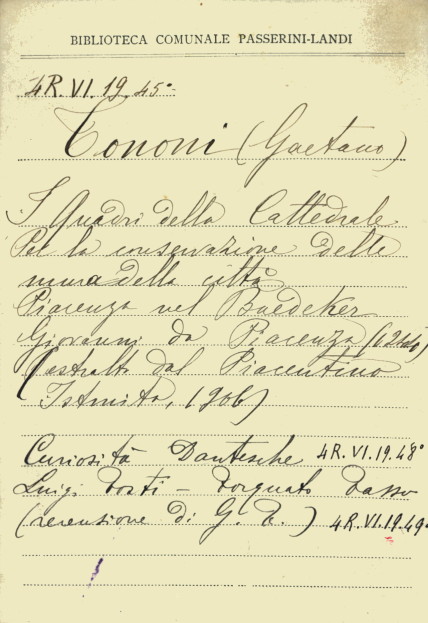 BIBLIOTECA COMUNALE PASSERINI-LANDI
4R.VI.19.45°-
Tononi (Gaetano)
I Quadri della Cattedrale
Per la conservazione delle
mura della città
Piacenza nel Baedeker
Giovanni da Piacenza
(estratti dal Piacentino
Istruito, 1906)
Curiosità Dantesche 4R.VI.19.48°
Luigi Tosti - Torquato Tasso
(recensione di G. T.) 4R.VI.19.49°